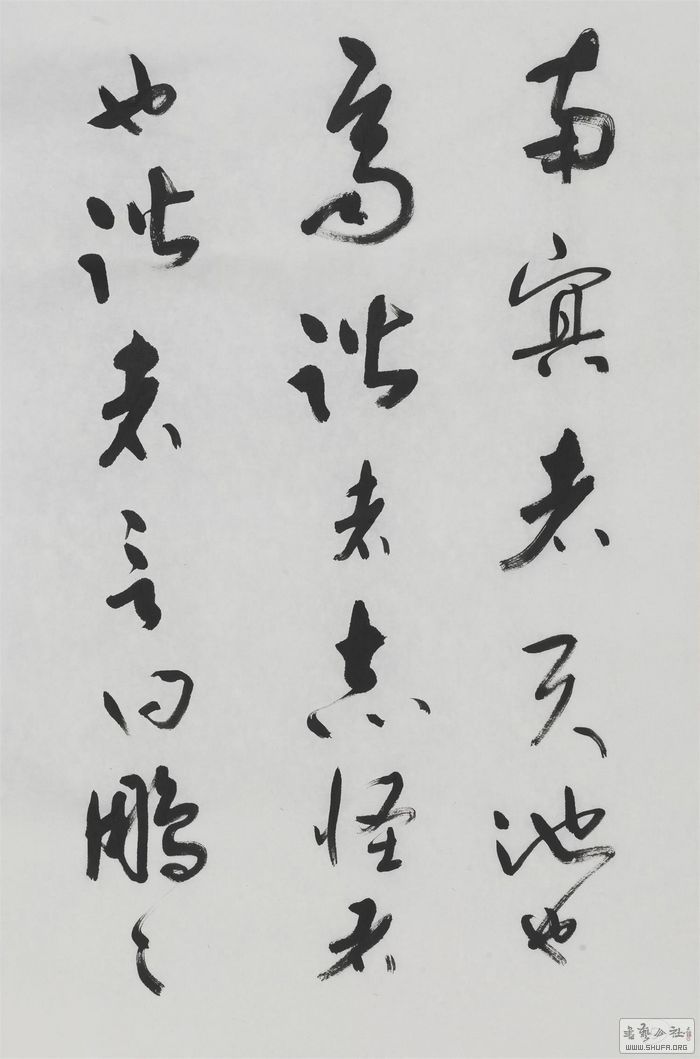 南冥者天池也
齊諧者志怪者
也諧者言曰鵬之
書藝公社
WWW.SHUFA.ORG